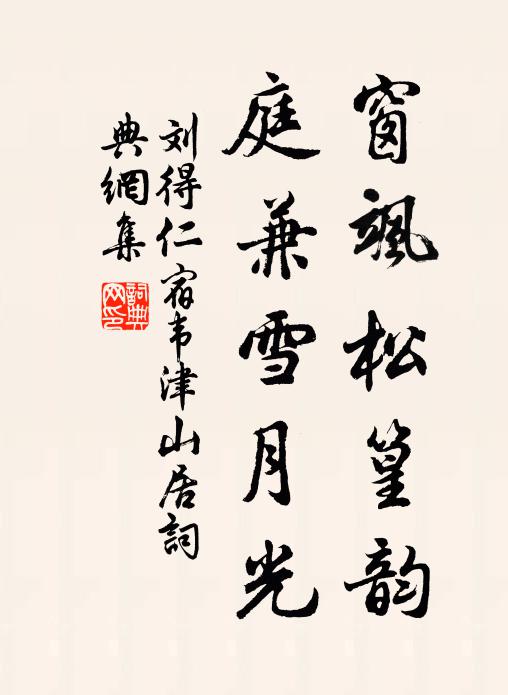 窗颯松篁韵
庭兼雪月光
刘得仁宿韦津山居詞
典網集
詞典
网印